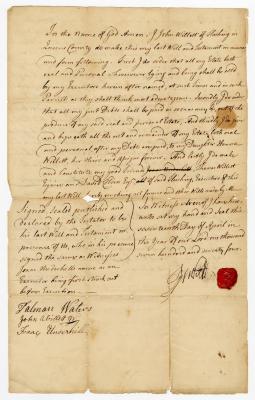 In the Name of God Amen. I John Willett of Flushing in
Queens County do make this my last Will and Testament in manner
and form following. First I do order that all my Estate both
real and Personal whatsoever lying and being shall be sold
by my Executors herein after named, at such times and in such
Parcells as they shall think most advantageous. Secondly I do order
that all my just Debts shall be paid as soon as may be out of the
produce of my said real and personal Estate. And thirdly I do give
and bequeath all the rest and remainder of my Estate both real
and personal after my Debts are paid to my Daughter
Willett, her Heirs and Assigns forever. And lastly I do make
and Constitute my good Friends Thomas Willett
Esquire and of said Flushing, Executors of this
my last Will hereby revoking all former and other Wills made by me
Signed sealed published and
declared by the testator to be
his last Will and Testament in
presence of Us, who in his presence
signed the same as Witnesses
name as an
Executor being first struck out
before Execution
In Witness hereof I have here
unto set my hand and Seal this
seventeenth Day of April in
the Year of our Lord one thousand
seven hundred and seventy four.
Talman Waters
John
Isaac Underhill